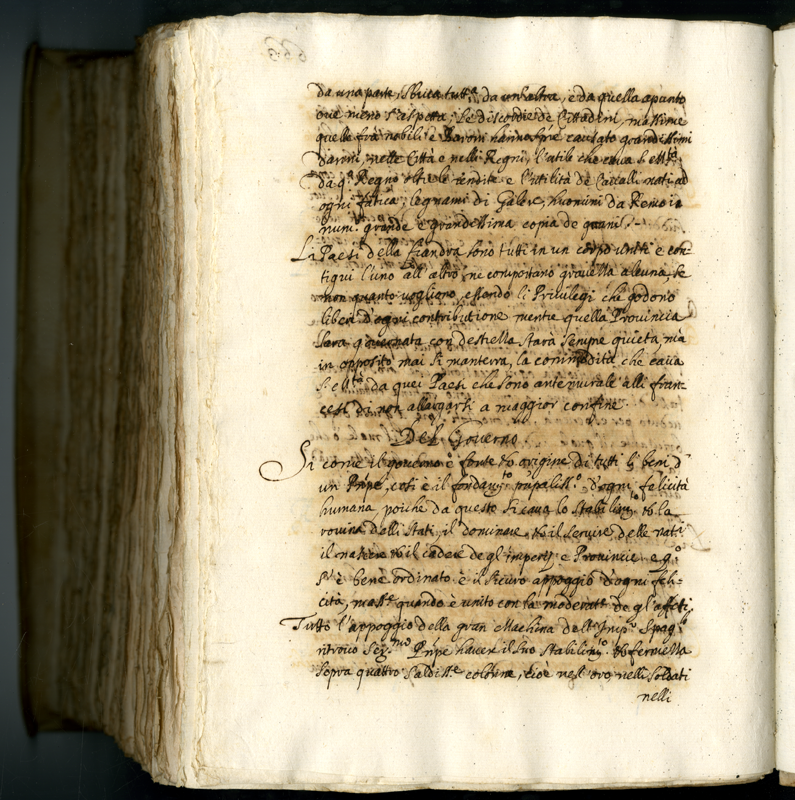 da una parte, sbuca tutta da un'altra, e da quella apunto
ove meno s'aspetta; Le discordie de Cittadini, massime
quelle frà nobili è Baroni hanno spre causato grandissimi
danni, nelle Città e nelli Regni, l'utile che cava
da q.o Regno oltre le rendite e l'utilità de Cavalli nati ad
ogni fatica, legnami di Galere, huomini da Remo in
num.o grande e grandissima copia de grani.
Li Paesi della fiandra sono tutti in un corpo uniti e con-
tigui l'uno all'altro, ne comportano gravezza alcuna, se
non quanto vogliono, essendo li Privilegi che godono
liberi d'ogni contributione mentre quella Provincia
sara governata con destrezza starà sempre quieta, mà
in opposito mai si manterra, la commodità che cava
S. da quei Paesi che sono antemurale alli fran-
cesi di non allargarsi a maggior confine.
Del Governo.
Si come il governo è fonte et origine di tutti li beni d'
un Prĩpe, così è il fondam.to d'ogni felicità
humana, poiche da questo si cava lo stabilim.to et la
rovina delli Stati, il dominare, et il servire delle nati
il nascere et il cadere de gl'imperij e Provincie e q.o
s'è bene ordinato è il sicuro appoggio d'ogni feli-
cità, mass.e quando è unito con la moderat.e de gl'affetti,
Tutto l'appoggio della gran Machina dell'Imp.o Spag.lo
ritrovo Ser.mo Prĩpe havere il suo stabilim.to et fermezza
sopra quattro saldiss.e colonne, cioè nell'oro, nelli soldati
nelli